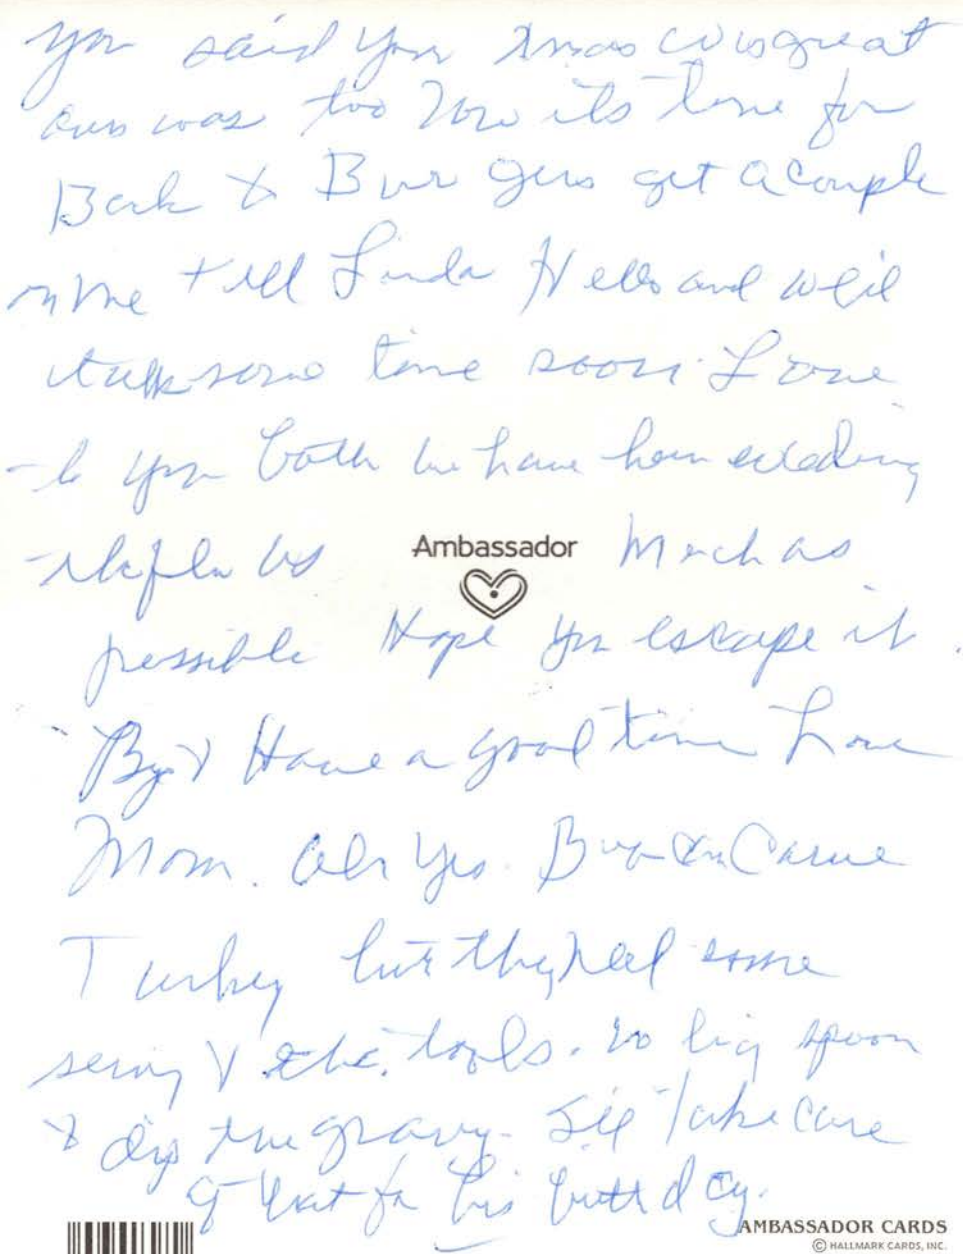 you said your Xmas was great
ours was too Now its time for
Back & Burgers get a couple
on me & tell Linda Hello and we'll
talk some time soon. Love
to you both we have been evading
the flu as Much as
Ambassador
possible Hope you escape it.
By & Have a good time Love
Mom. Oh yes. B can Carve
Turkey but they need some
serving & other tools. no big spoon
& dip the gravy. I'll Take Care
of that for his birthday.
AMBASSADOR CARDS
© HALLMARK CARDS, INC.